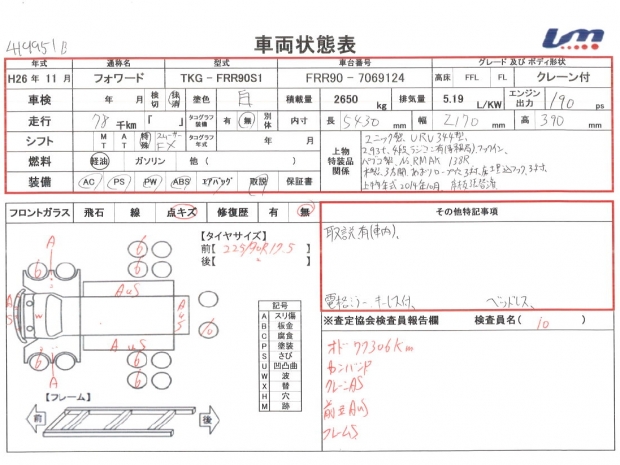 車両状態表
年式 通称名 型式 車台番号 グレード 及び ボディ形状
H26 年 11 月 フォワード TKG - FRR90S1 FRR90 - 7069124 高床 FFL FL クレーン付
車検 年 月 検切 抹消 塗色 白 積載量 2650 kg 排気量 5.19 L/KW エンジン出力 190 ps
走行 78 千km 『 』 タコグラフ装備 有 無 別体 内寸 長 5430 mm 幅 2170 mm 高 390 mm
シフト MT AT 特殊 スムーサーFX タコグラフ年式 年 月 上物特装品関係 ユニック製、URU344型、
2.93t、4段、ラジコン有
燃料 軽油 ガソリン 他 ( )
装備 AC PS PW ABS エアバッグ 取説 保証書
上物年式 2014年10月
フロントガラス 飛石 線 点キズ 修復歴 有 無 その他特記事項
取説有(車内)、
【タイヤサイズ】
前【 225/90R17.5 】
後【 〃 】
A 6 6 A u S
記号
A スリ傷
B 板金
C 腐食
P 塗装
S さび
U 凹凸曲
W 波
X 替
H 穴
M 跡
電格ミラー キーレス付、 ベッドレス、
※査定協会検査員報告欄 検査員名( 10 )
オド 77306km
カンバンP
クレーンAS
前立AuS
フレームS
【フレーム】
前 後